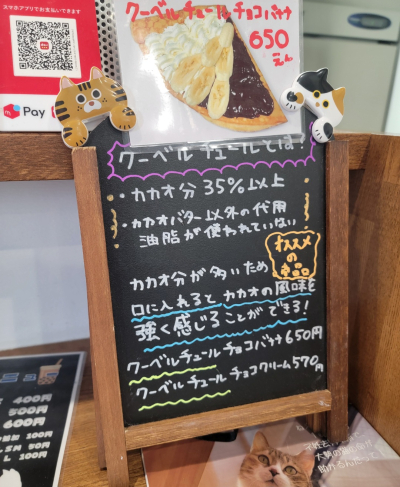 スマホアプリでお支払いできます
Pay
クーベルチュールチョコバナナ
650
えん
クーベルチュールとは!
・カカオ分 35%以上
・カカオバター以外の代用
油脂が使われていない
オススメ
の
商品
カカオ分が多いため
口に入れるとカカオの風味を
強く感じることができる!
クーベルチュールチョコバナナ650円
クーベルチュールチョコクリーム570円
400円
500円
600円
100円
100円
L 100円